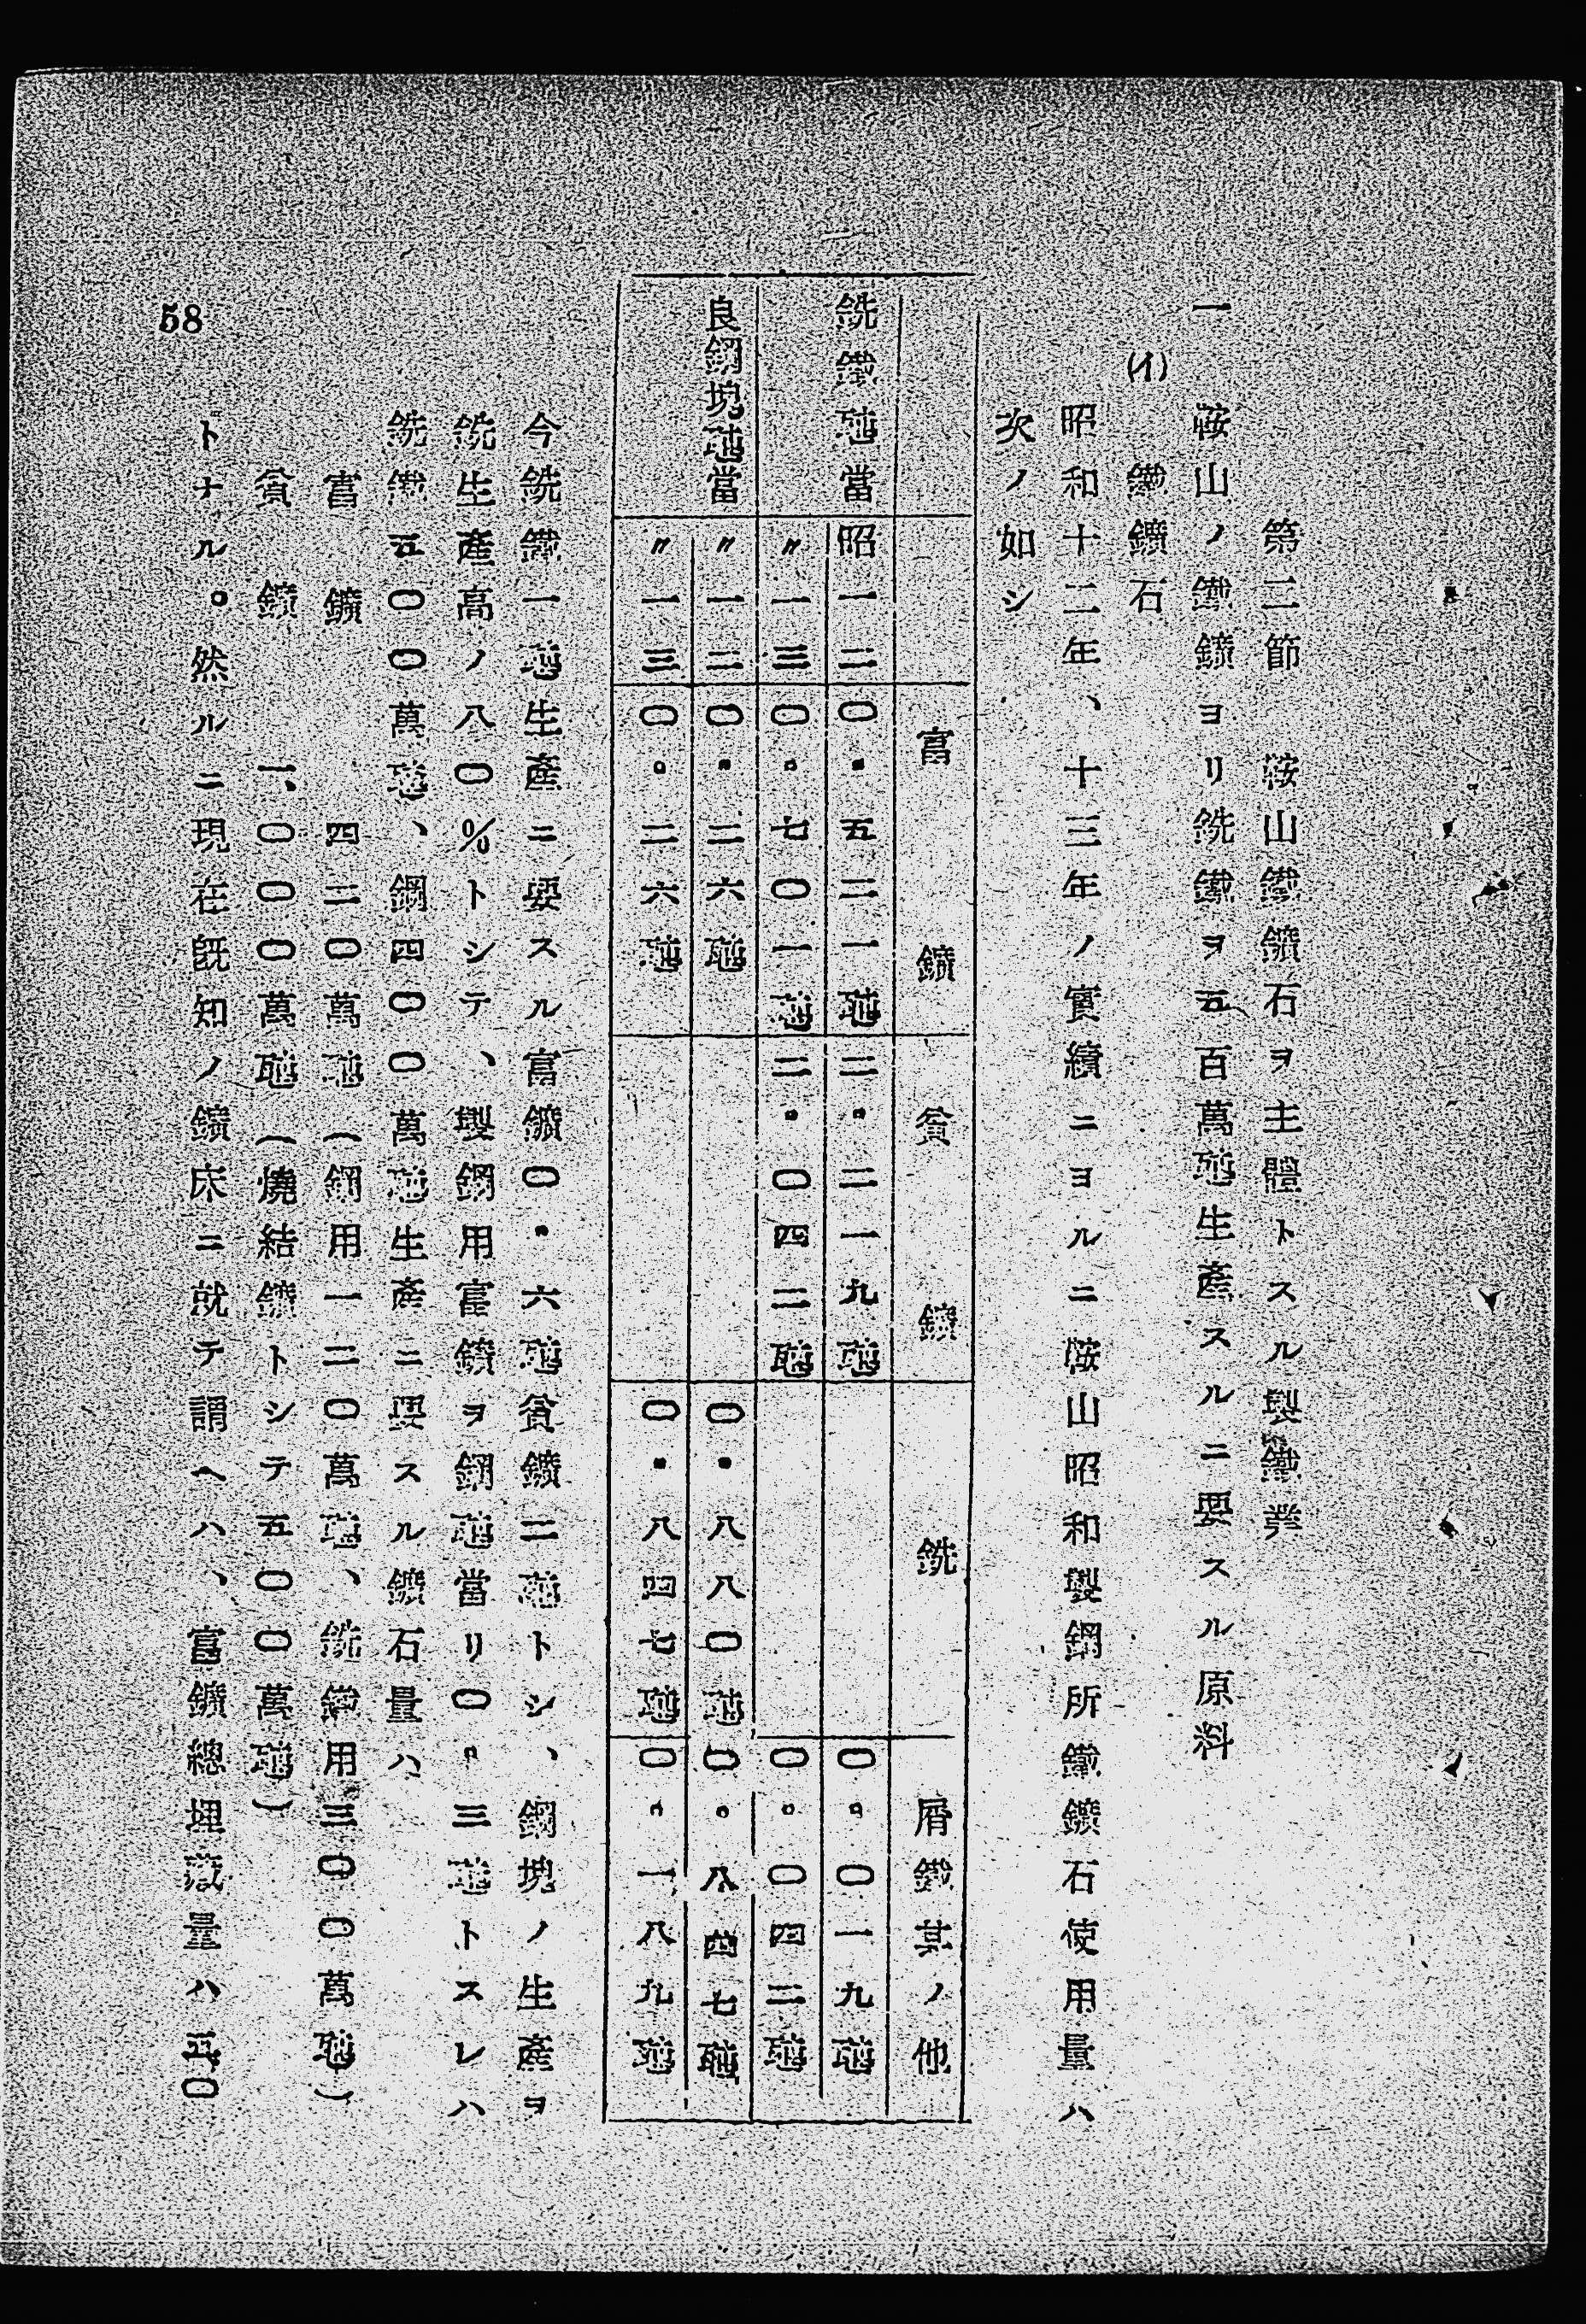 第二節　鞍山鐵鑛石ヲ主體トスル製鐵業
一　鞍山ノ鐵鑛ヨリ銑鐵ヲ五百萬瓲生產スルニ要スル原料
(イ)　鐵鑛石
昭和十二年、十三年ノ實績ニヨルニ鞍山昭和製鋼所鐵鑛石使用量ハ
次ノ如シ
富鑛　貧鑛　銑　屑鐵其ノ他
銑鐵瓲當　昭一二　〇・五二一瓲　二・二一九瓲　〇・〇一九瓲
〃一三　〇・七〇一瓲　二・〇四二瓲　〇・〇四二瓲
良鋼塊瓲當　〃一二　〇・二六瓲　〇・八八〇瓲　〇・八四七瓲
〃一三　〇・二六瓲　〇・八四七瓲　〇・一八九瓲
今銑鐵一瓲生產ニ要スル富鑛〇・六瓲貧鑛二瓲トシ、鋼塊ノ生產ヲ
銑生產高ノ八〇％トシテ、製鋼用富鑛ヲ鋼瓲當リ〇・三瓲トスレハ
銑鐵五〇〇萬瓲、鋼四〇〇萬瓲生產ニ要スル鑛石量ハ、
富鑛　四二〇萬瓲（鋼用一二〇萬瓲、銑鐵用三〇〇萬瓲）
貧鑛　一、〇〇〇萬瓲（燒結鑛トシテ五〇〇萬瓲）
トナル。然ルニ現在既知ノ鑛床ニ就テ謂ヘハ、富鑛總埋藏量ハ五、〇
58